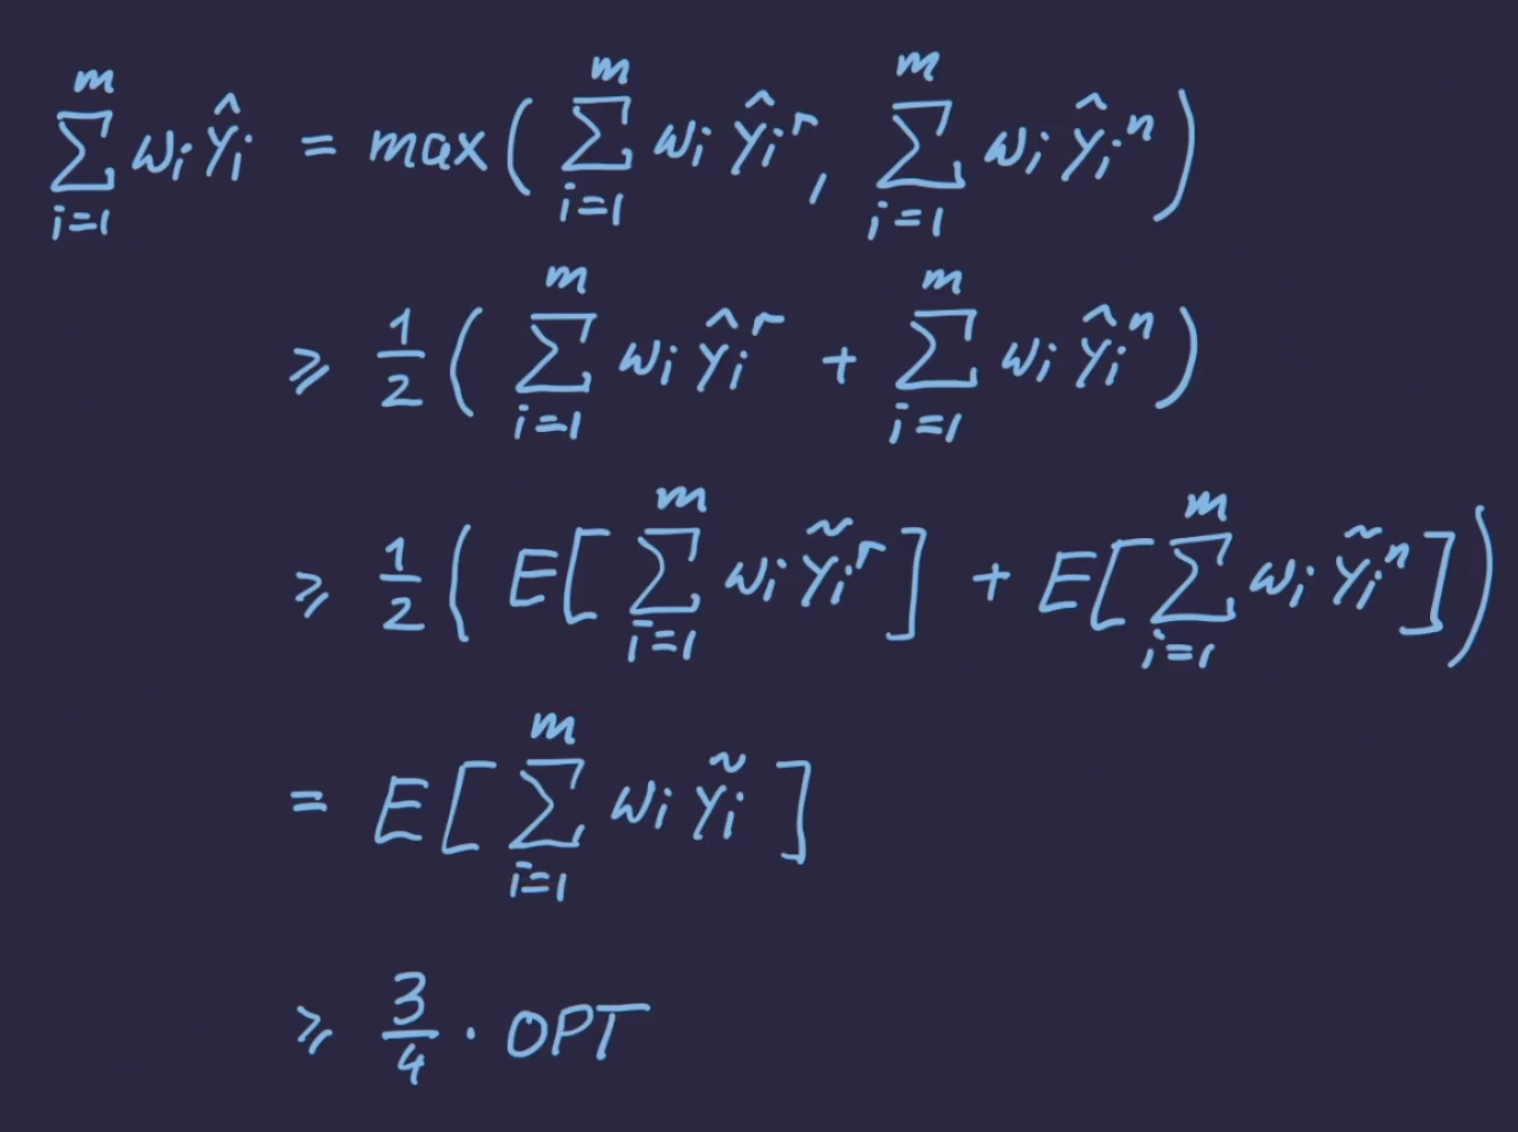 $\sum_{i=1}^{m} w_i \hat{y}_i = max\left( \sum_{i=1}^{m} w_i \hat{y}_i^r, \sum_{i=1}^{m} w_i \hat{y}_i^n \right)$
$\geqslant \frac{1}{2} \left( \sum_{i=1}^{m} w_i \hat{y}_i^r + \sum_{i=1}^{m} w_i \hat{y}_i^n \right)$
$\geqslant \frac{1}{2} \left( E\left[ \sum_{i=1}^{m} w_i \tilde{y}_i^r \right] + E\left[ \sum_{i=1}^{m} w_i \tilde{y}_i^n \right] \right)$
$= E\left[ \sum_{i=1}^{m} w_i \tilde{y}_i \right]$
$\geqslant \frac{3}{4} \cdot OPT$